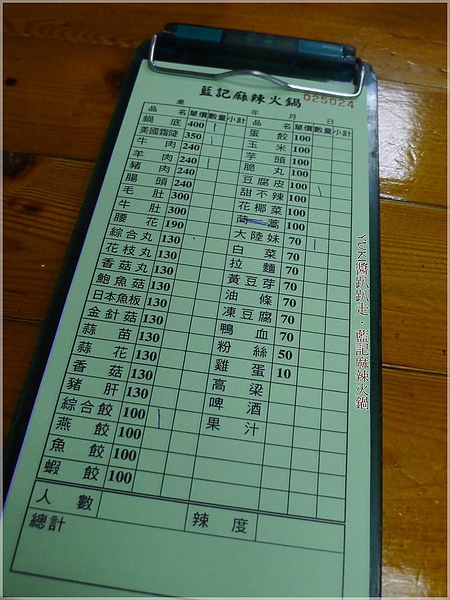 藍記麻辣火鍋 025024
桌 年 月 日
品名 單價 數量 小計 品名 單價 數量 小計
鍋底 400 蛋餃 100
美國霜降 350 玉米 100
牛肉 240 芋頭 100
羊肉 240 脆丸 100
豬肉 240 豆腐皮 100
腸頭 240 甜不辣 100
毛肚 300 花椰菜 100
牛肚 300 茼蒿 100
腰花 190 大陸妹 70
綜合丸 130 白菜 70
花枝丸 130 拉麵 70
香菇丸 130 黃豆芽 70
鮑魚菇 130 油條 70
日本魚板 130 凍豆腐 70
金針菇 130 鴨血 70
蒜苗 130 粉絲 50
蒜花 130 雞蛋 10
香菇 130 高梁
豬肝 130 啤酒
綜合餃 100 果汁
燕餃 100
魚餃 100
蝦餃 100
人數 辣度
總計
YUKI醬趴趴走．藍記麻辣火鍋